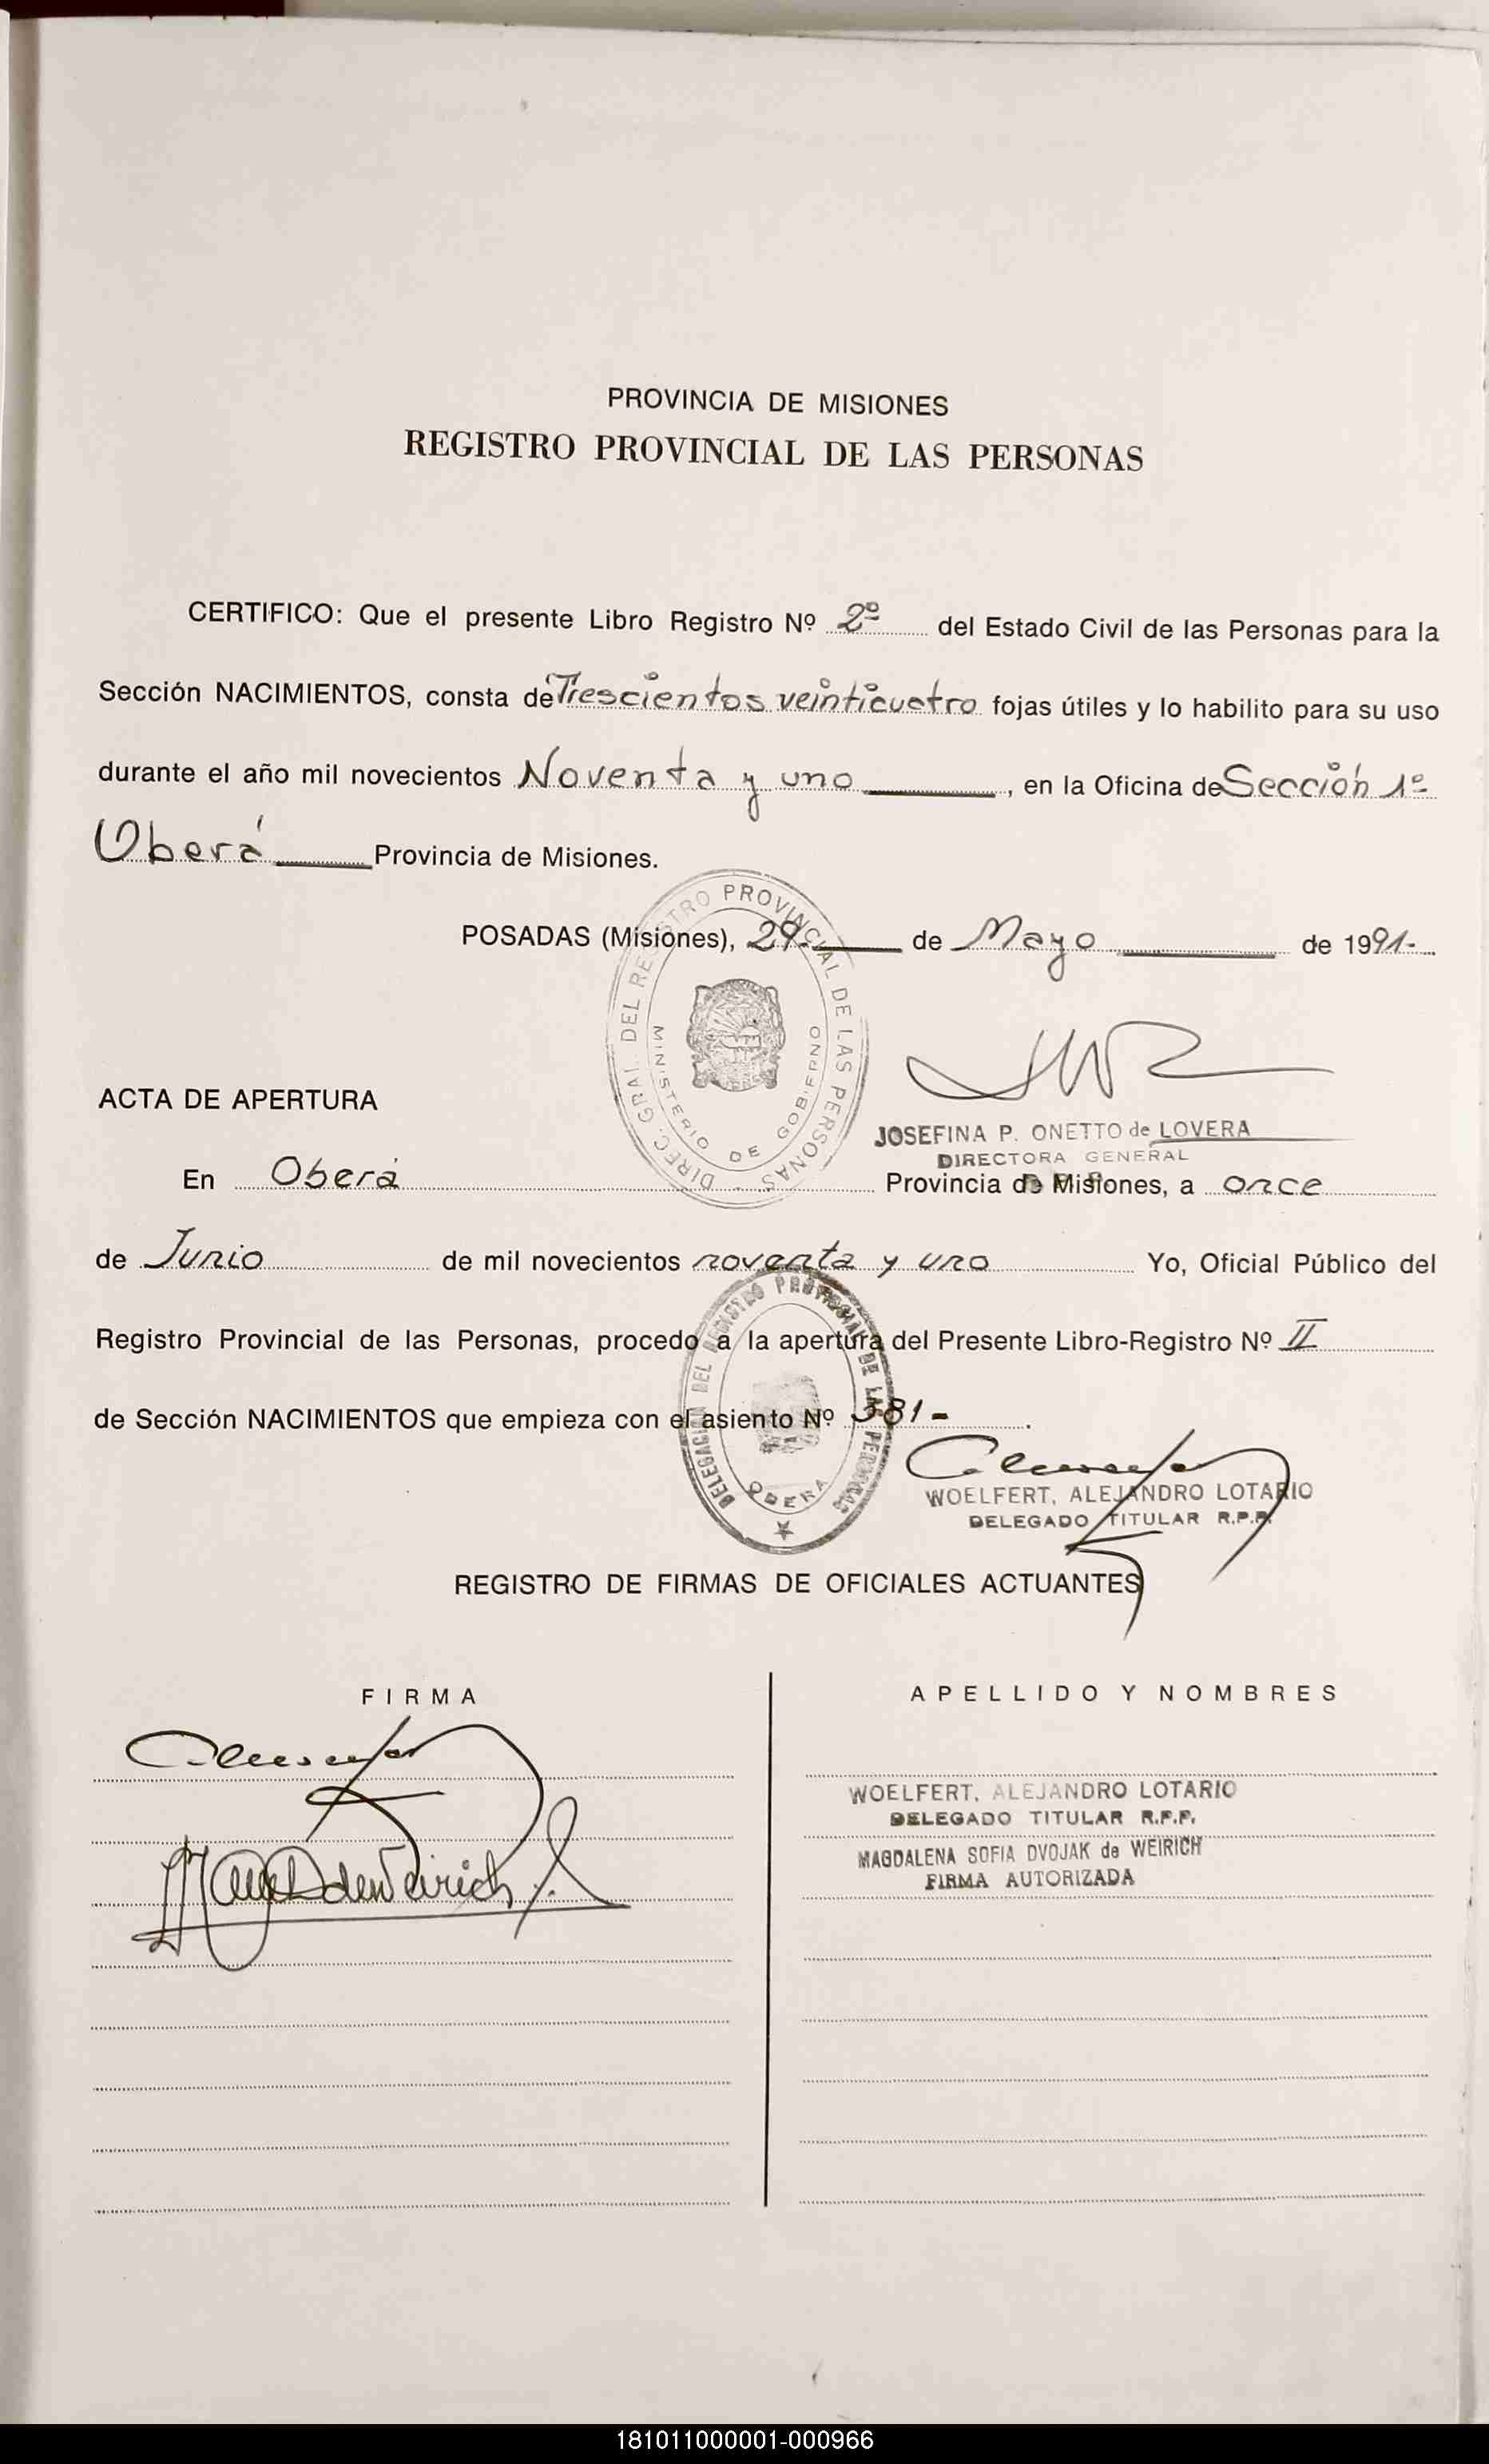 PROVINCIA DE MISIONES
REGISTRO PROVINCIAL DE LAS PERSONAS
CERTIFICO: Que el presente Libro Registro Nº 2º del Estado Civil de las Personas para la
Sección NACIMIENTOS, consta de Trescientos veinticuatro fojas útiles y lo habilito para su uso
durante el año mil novecientos Noventa y uno, en la Oficina de Sección 1º
Oberá Provincia de Misiones.
POSADAS (Misiones), 29 de Mayo de 1991.-
DIREC. GRAL. DEL REGISTRO PROVINCIAL DE LAS PERSONAS
MINISTERIO DE GOBIERNO
ACTA DE APERTURA
JOSEFINA P. ONETTO de LOVERA
DIRECTORA GENERAL
En Oberá Provincia de Misiones, a once
de Junio de mil novecientos noventa y uno Yo, Oficial Público del
Registro Provincial de las Personas, procedo a la apertura del Presente Libro-Registro Nº II
de Sección NACIMIENTOS que empieza con el asiento Nº 381-.
DELEGACION DEL REGISTRO PROVINCIAL DE LAS PERSONAS
OBERA
WOELFERT, ALEJANDRO LOTARIO
DELEGADO TITULAR R.P.P.
REGISTRO DE FIRMAS DE OFICIALES ACTUANTES
FIRMA
APELLIDO Y NOMBRES
WOELFERT, ALEJANDRO LOTARIO
DELEGADO TITULAR R.P.P.
MAGDALENA SOFIA DVOJAK de WEIRICH
FIRMA AUTORIZADA
181011000001-000966